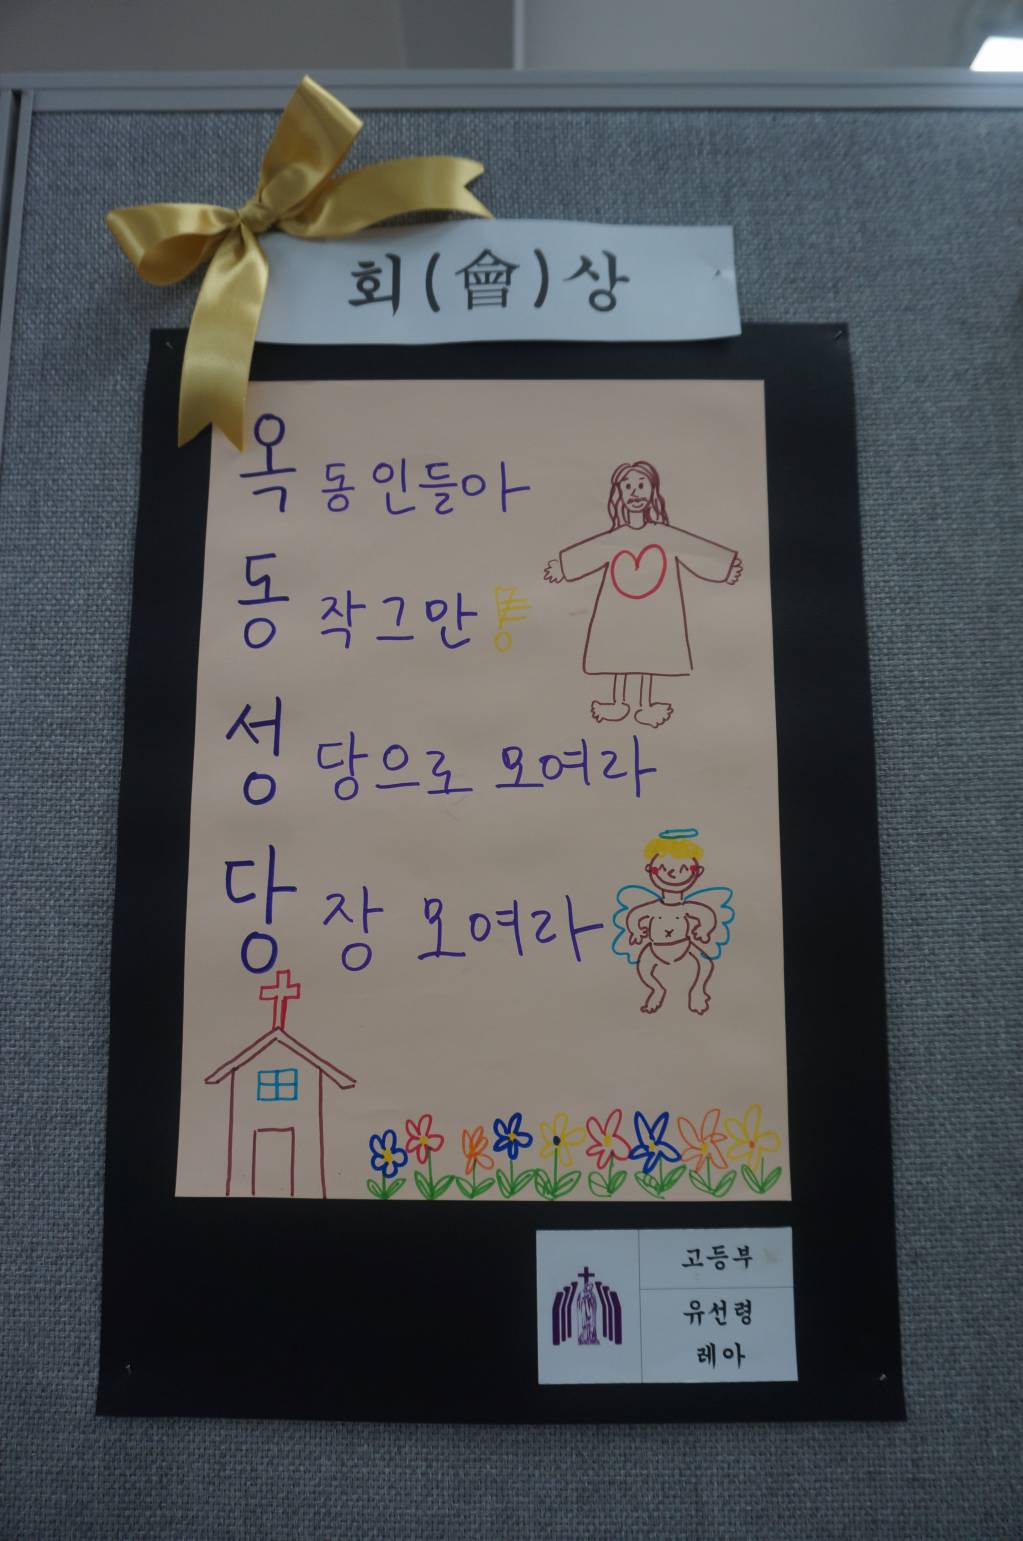 회(會)상
옥 동인들아
동 작그만
성 당으로 모여라
당 장 모여라
고등부
유선령
레아